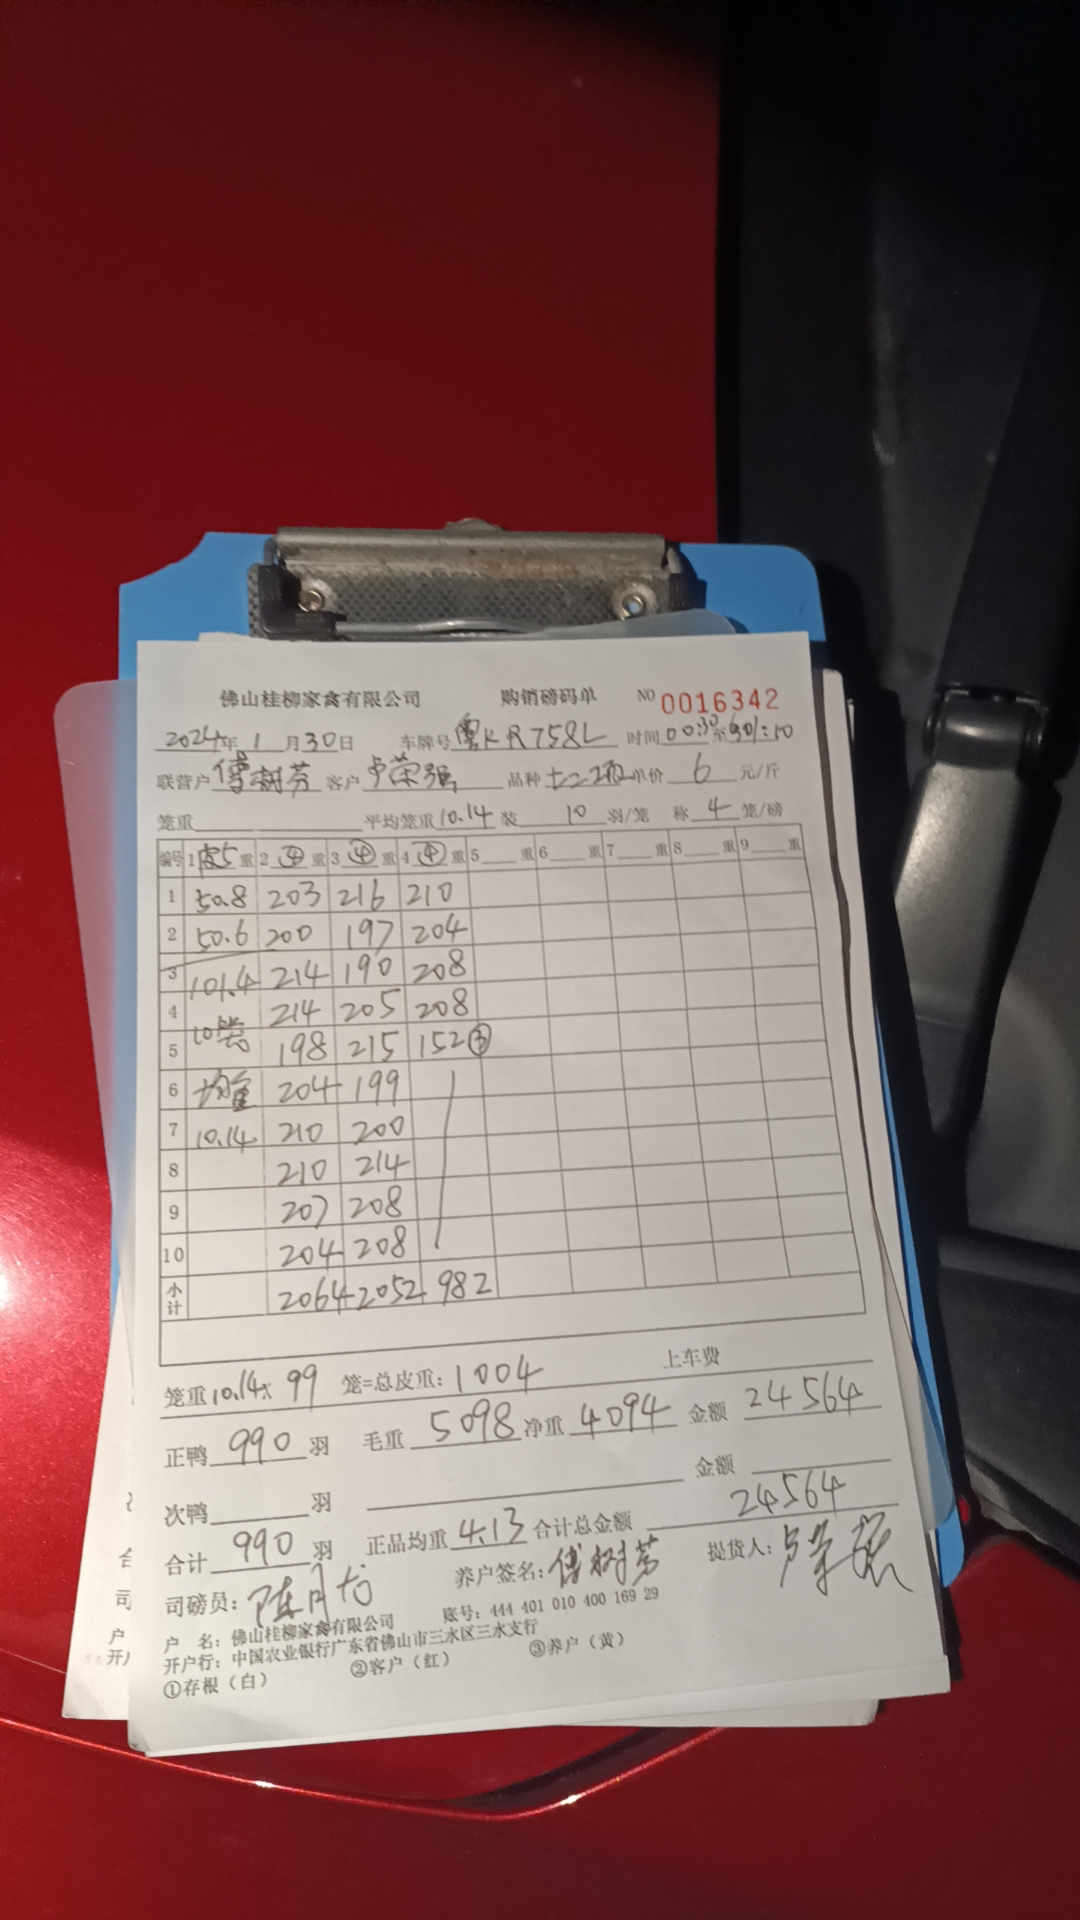 佛山桂柳家禽有限公司 购销磅码单 NO 0016342
2024年 1 月 30 日 车牌号 KR758L 时间 00:30 至 01:10
联营户 傅树芳 客户 卢荣强 品种 单价 6 元/斤
笼重 平均笼重 10.14 装 10 羽/笼 称 4 笼/磅
编号 1 皮5 重 2 ④ 重 3 ④ 重 4 ④ 重 5 重 6 重 7 重 8 重 9 重
1 50.8 203 216 210
2 50.6 200 197 204
3 101.4 214 190 208
4 10笼 214 205 208
5 198 215 152③
6 均重 204 199
7 10.14 210 200
8 210 214
9 207 208
10 204 208
小计 2064 2052 982
笼重 10.14x 99 笼=总皮重：1004 上车费
正鸭 990 羽 毛重 5098 净重 4094 金额 24564
次鸭 羽 金额
合计 990 羽 正品均重 4.13 合计总金额 24564
司磅员： 养户签名：傅树芳 提货人：
户 名：佛山桂柳家禽有限公司 账号：444 401 010 400 169 29
开户行：中国农业银行广东省佛山市三水区三水支行
①存根（白） ②客户（红） ③养户（黄）